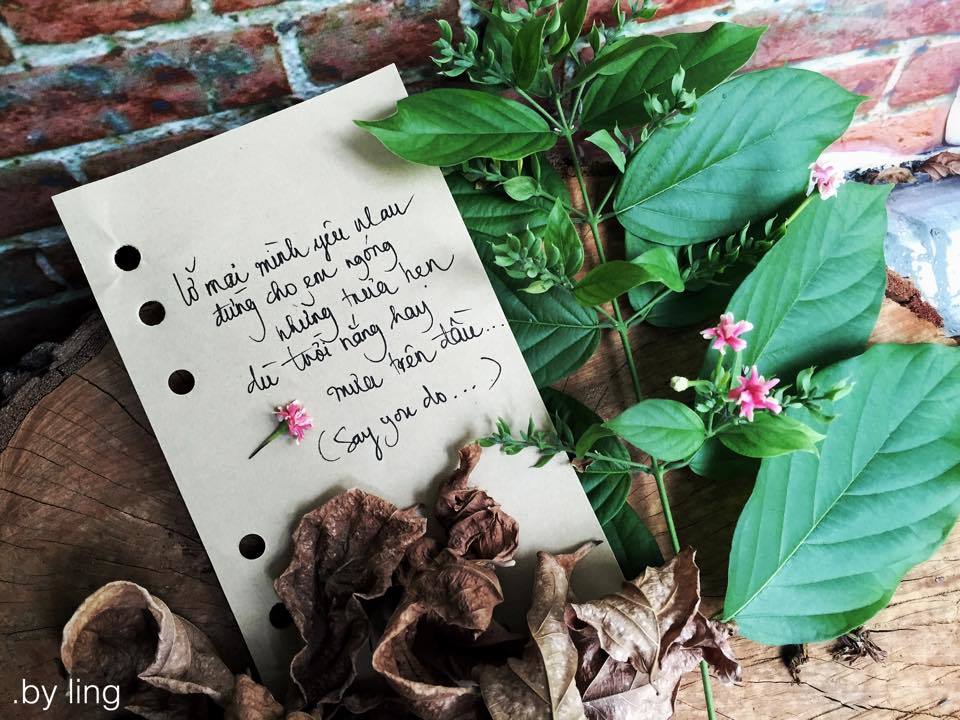 lỡ mai mình yêu nhau
đừng cho em ngóng
những trưa hẹn
dù trời nắng hay
mưa trên đầu....
(Say you do....)
.by ling